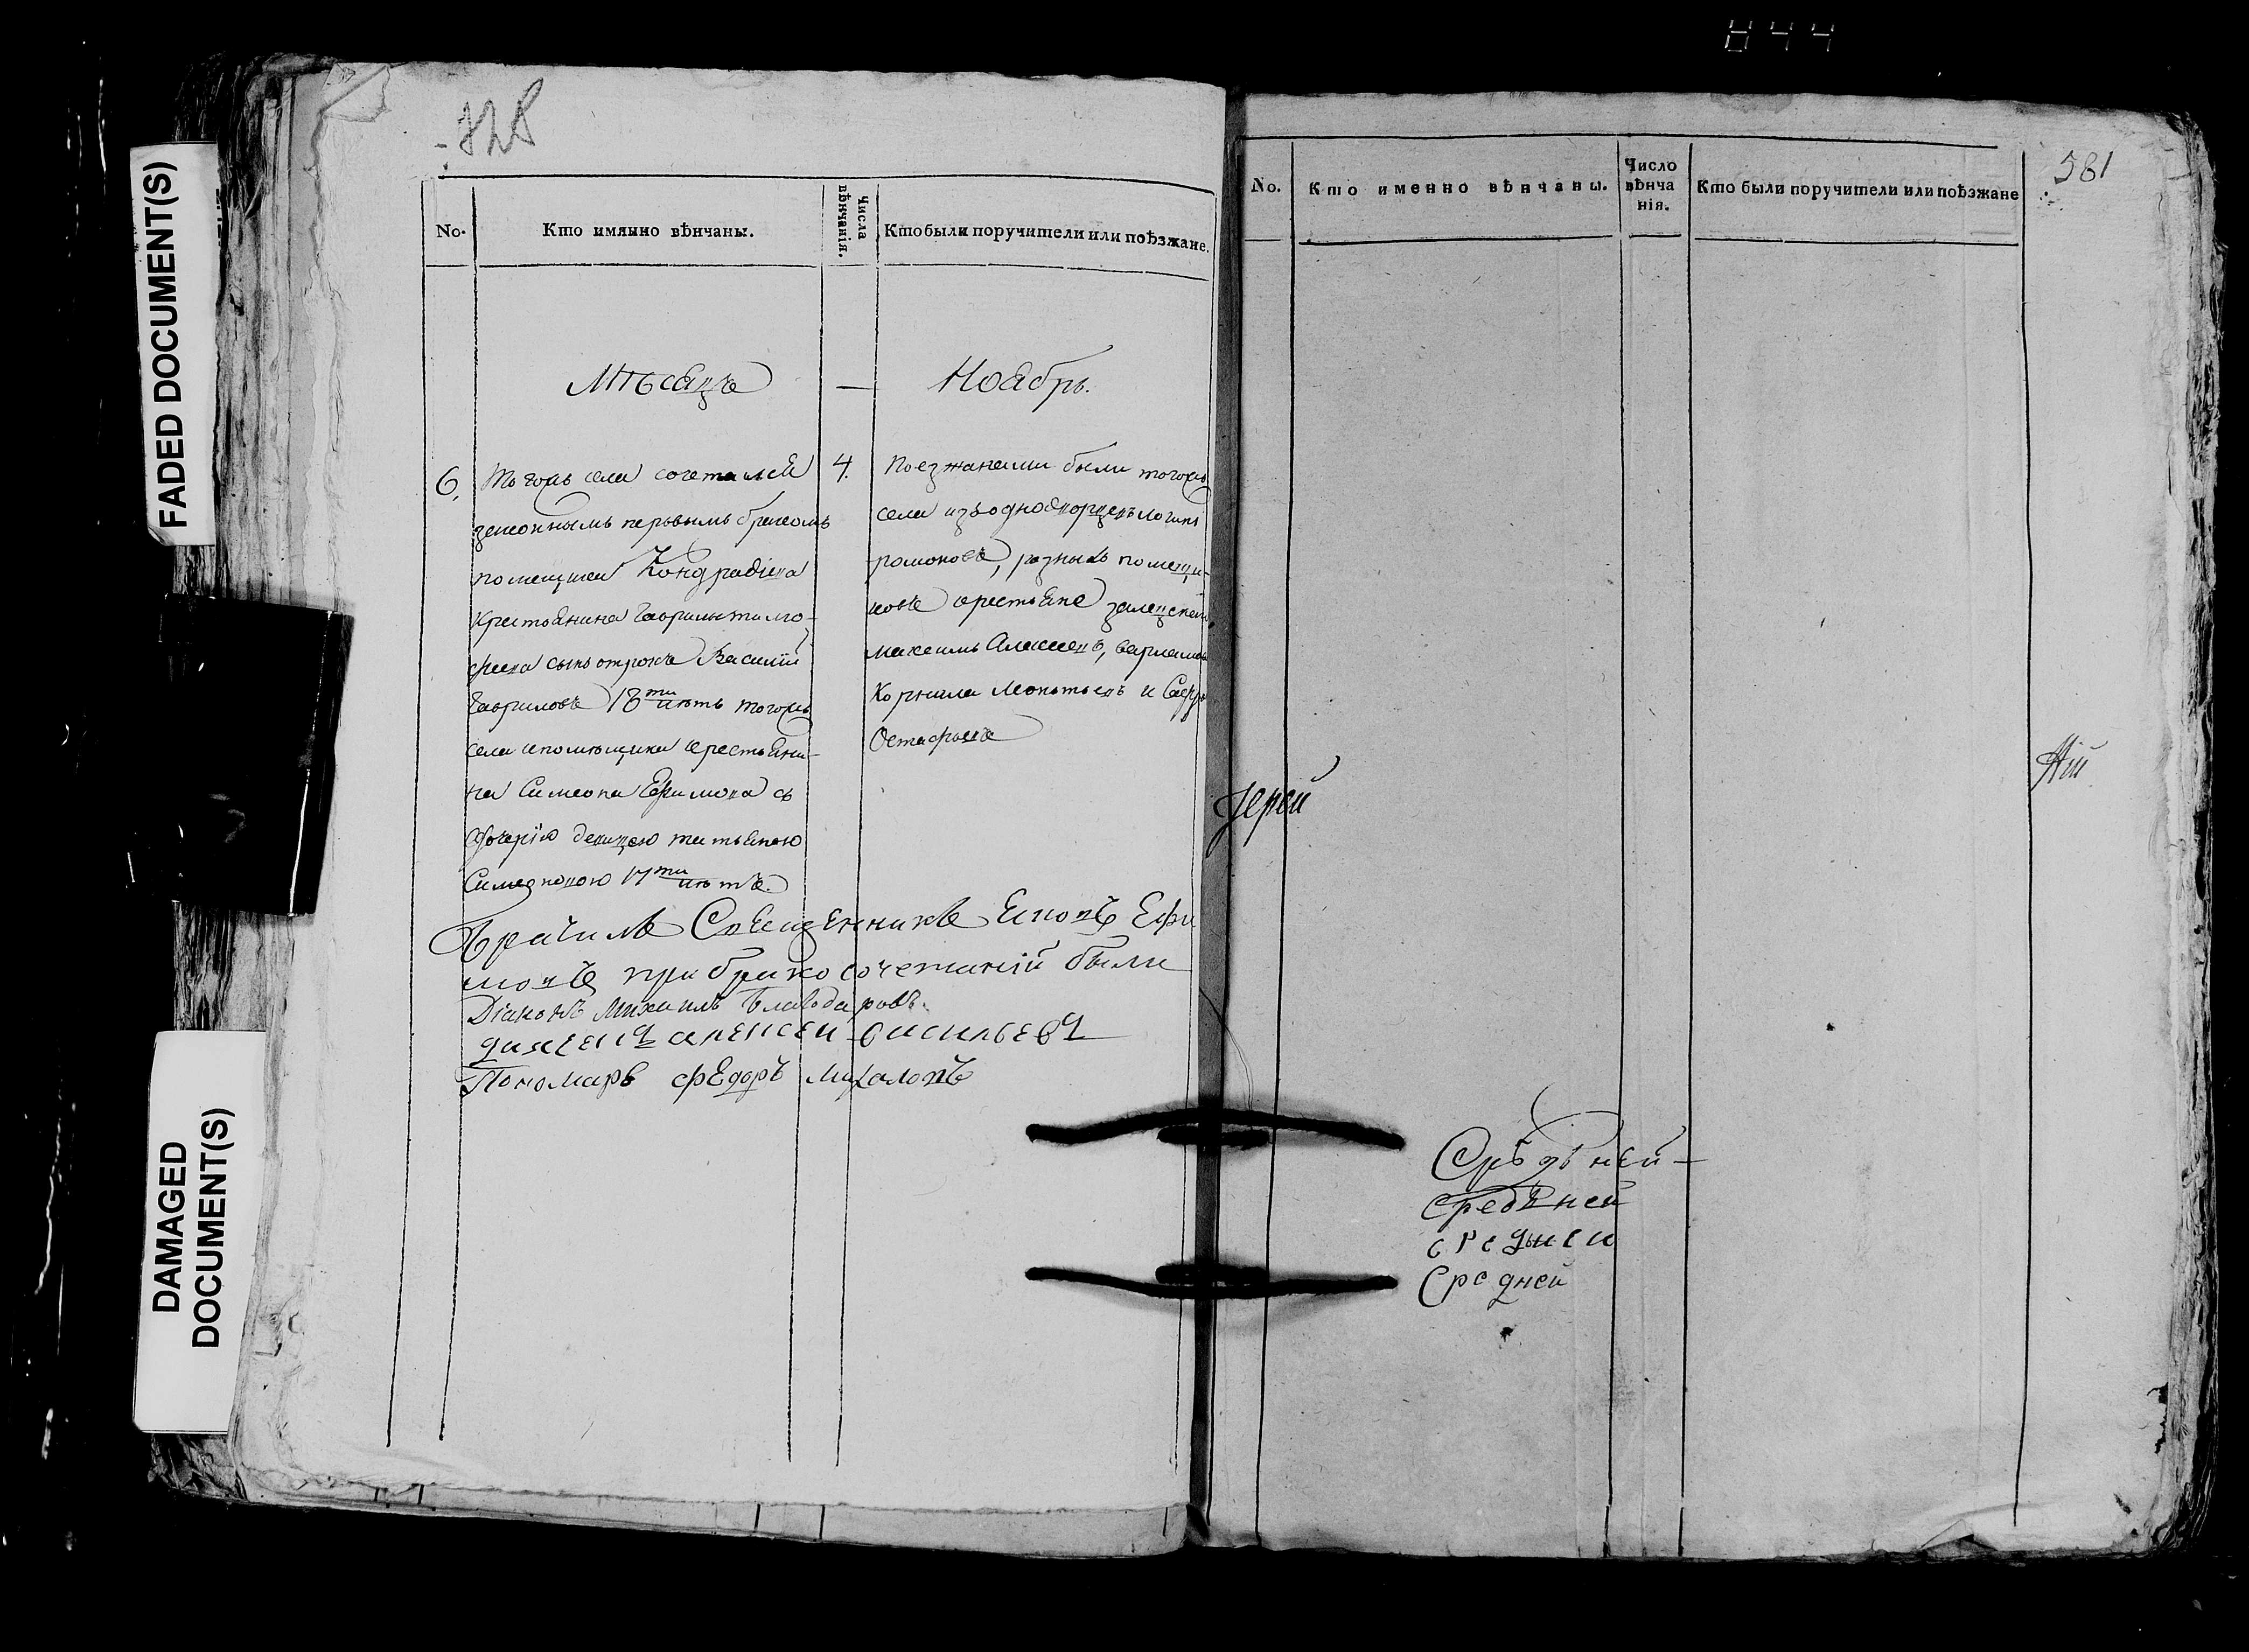 844
FADED DOCUMENT(S)
DAMAGED DOCUMENT(S)
328
No.
Кто имянно вѣнчаны.
Числа вѣнчанія.
Кто были поручители или поѣзжане.
Мѣсяцъ — Ноябрь.
6.
Тогожъ села сочетался
законнымъ первымъ бракомъ
помещика
крестьянина Гаврилы Тимо-
феева сынъ отрокъ Василій
Гавриловъ 18ти лѣтъ тогожъ
села и помѣщика крестьяни-
на Симеона Ефимова съ
дочерію девицею татьяною
Симеоновою 17ти лѣтъ.
4.
Поезжанеми были тогожъ
села изъ однодворцевъ логинъ
романовъ, разныхъ помещи-
ковъ крестьяне
максимъ
Корнила и
Остафьевъ
Брачилъ Священникъ Ефи
мовъ при бракосочетаній были
Діаконъ Михаилъ Благодаровъ.
дьячекъ алексеи васильевъ
Пономарь федоръ
No.
Кто именно вѣнчаны.
Число вѣнча нія.
Кто были поручители или поѣзжане
381
Іерей
Срѣдьней —
Средьней
среднеи
Средней